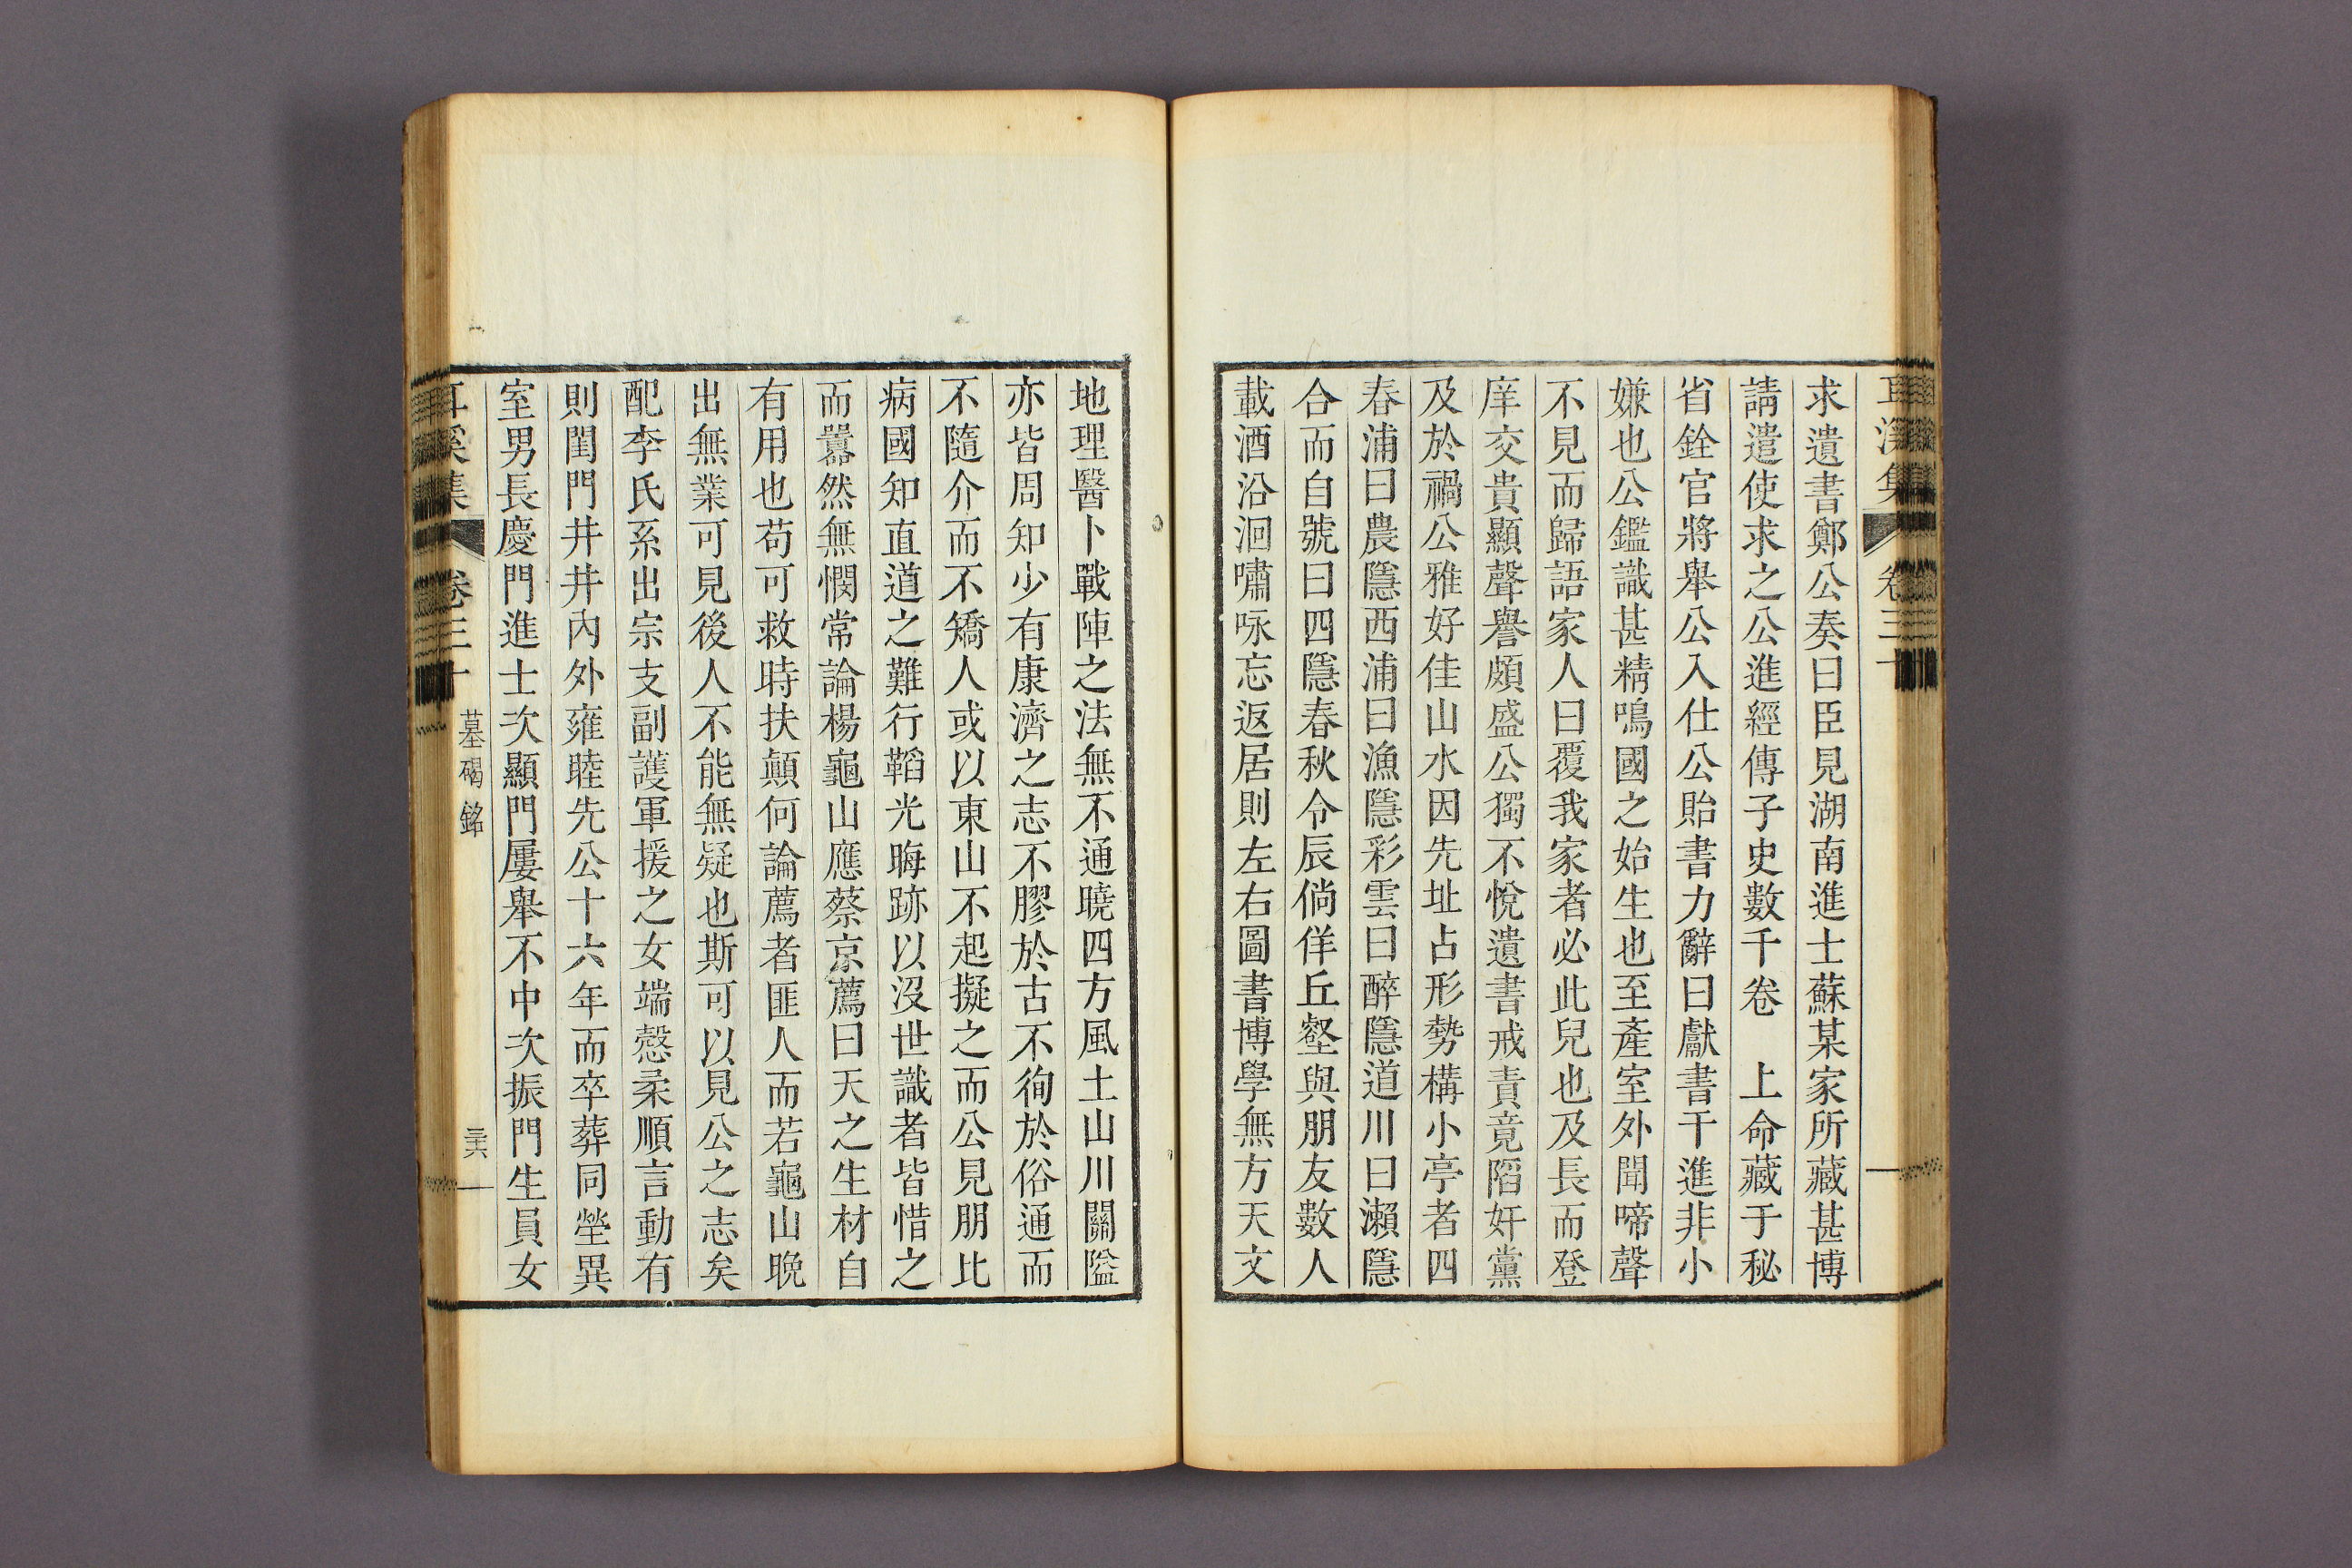 求遺書鄭公奏曰臣見湖南進士蘇某家所藏甚博
請遣使求之公進經傳子史數千卷　上命藏于秘
省銓官將舉公入仕公貽書力辭曰獻書干進非小
嫌也公鑑識甚精鳴國之始生也至產室外聞啼聲
不見而歸語家人曰覆我家者必此兒也及長而登
庠交貴顯聲譽頗盛公獨不悅遺書戒責竟陷奸黨
及於禍公雅好佳山水因先址占形勢構小亭者四
春浦曰農隱西浦曰漁隱彩雲曰醉隱道川曰瀨隱
合而自號曰四隱春秋令辰倘佯丘壑與朋友數人
載酒沿洄嘯咏忘返居則左右圖書博學無方天文
地理醫卜戰陣之法無不通曉四方風土山川關隘
亦皆周知少有康濟之志不膠於古不徇於俗通而
不隨介而不矯人或以東山不起擬之而公見朋比
病國知直道之難行韜光晦跡以沒世識者皆惜之
而囂然無憫常論楊龜山應蔡京薦曰天之生材自
有用也苟可救時扶顛何論薦者匪人而若龜山晚
出無業可見後人不能無疑也斯可以見公之志矣
配李氏系出宗支副護軍援之女端慤柔順言動有
則閨門井井內外雍睦先公十六年而卒葬同塋異
室男長慶門進士次顯門屢舉不中次振門生員女
耳溪集　卷三十　墓碣銘　三六